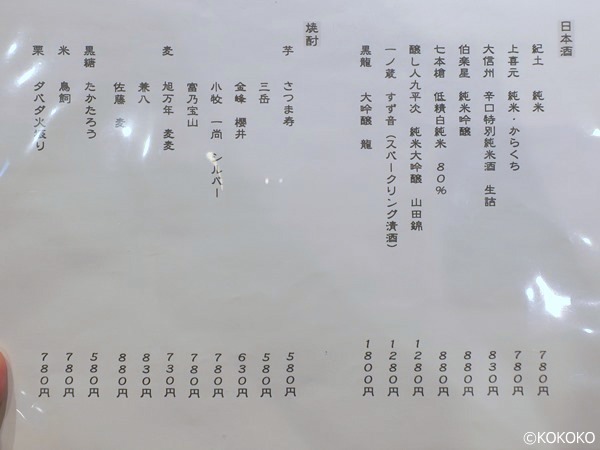 日本酒
紀土 純米 780円
上喜元 純米・からくち 780円
大信州 辛口特別純米酒 生詰 830円
伯楽星 純米吟醸 880円
七本槍 低精白純米 80% 880円
醸し人九平次 純米大吟醸 山田錦 1280円
一ノ蔵 すず音(スパークリング清酒) 1280円
黒龍 大吟醸 龍 1800円
焼酎
芋 さつま寿 580円
三岳 580円
金峰 櫻井 630円
小牧 一尚 シルバー 780円
富乃宝山 780円
麦 旭万年 麦麦 730円
兼八 830円
佐藤 麦 880円
黒糖 たかたろう 580円
米 鳥飼 780円
栗 ダバダ火振り 780円
©KOKOKO